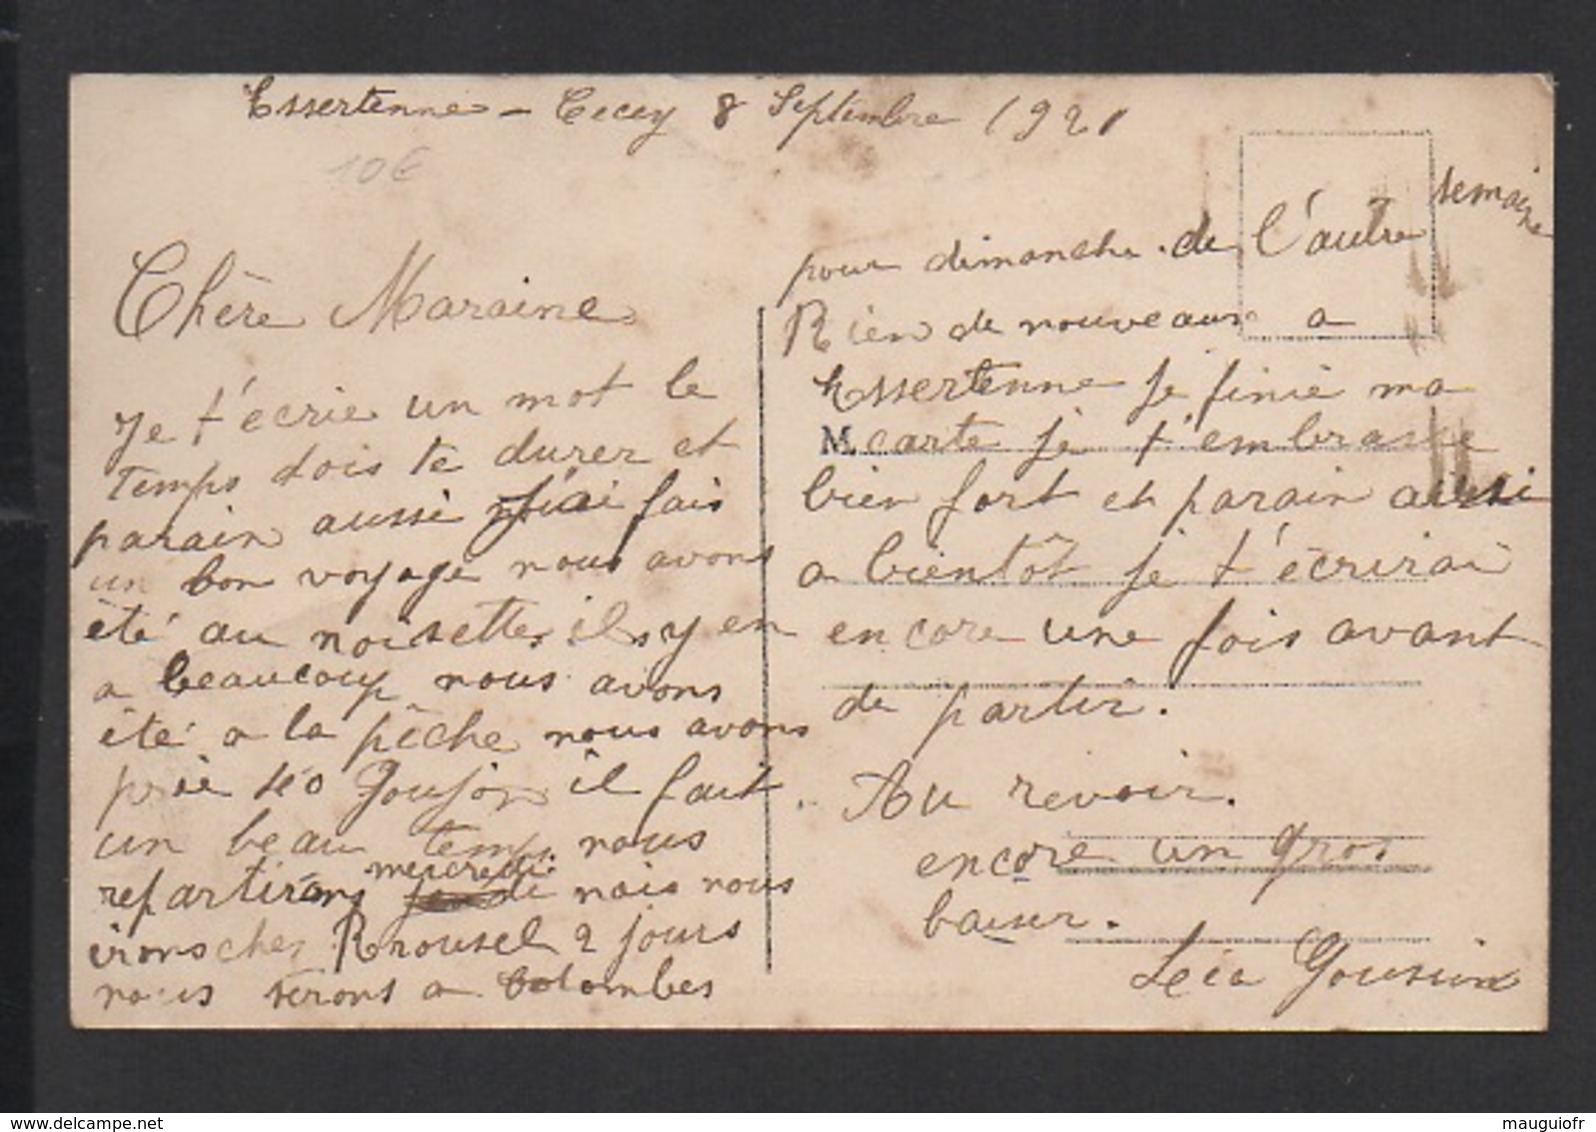 Essertenne - Cecey 8 Septembre 1921
10€
Chère Maraine
je t'écrie un mot le
temps dois te durer et
parain aussi j'ai fais
un bon voyage nous avons
été au noisettes il y en
a beaucoup nous avons
été a la pêche nous avons
prie 40 Goujon il fait
un beau temps nous
repartirons mercredi mais nous
irons ches Rrousel 2 jours
nous serons a Colombes
pour dimanche de l'autre semaine
Rien de nouveaux a
Essertenne je finie ma
M. carte je t'embrasse
bien fort et parain aussi
a bientôt je t'écrirai
encore une fois avant
de partir.
Au revoir.
encore un gros
baiser.
Léa
www.delcampe.net
mauguiofr